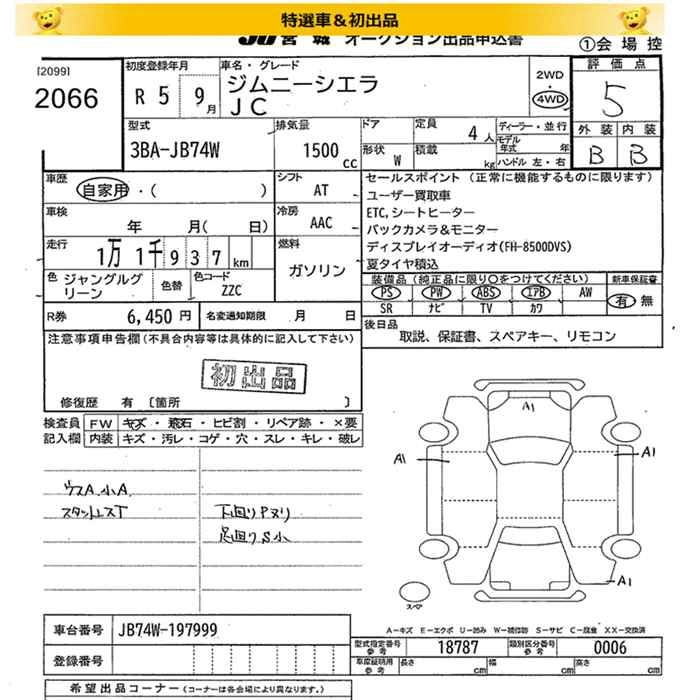 特選車＆初出品
JU 宮城 オークション出品申込書
①会場控
[2099]
2066
初度登録年月
R 5 9月
車名・グレード
ジムニーシエラ
JC
2WD
・
4WD
評価点
5
型式
3BA-JB74W
排気量
1500 cc
ドア
形状 W
定員 4人
積載 kg
ディーラー・並行
モデル年式 年
ハンドル 左・右
外装 内装
B B
車歴
自家用・( )
シフト
AT
セールスポイント (正常に機能するものに限ります)
ユーザー買取車
ETC,シートヒーター
バックカメラ&モニター
ディスプレイオーディオ(FH-8500DVS)
夏タイヤ積込
車検
年 月( 日)
冷房
AAC
走行
1万1千937km
燃料
ガソリン
色 ジャングルグリーン
色替
色コード
ZZC
装備品 (純正品に限り○をつけてください)
PS PW ABS エアB AW
SR ナビ TV カワ
新車保証書
有 無
R券 6,450 円
名変通知期限 月 日
後日品
取説、保証書、スペアキー、リモコン
注意事項申告欄 (不具合内容等は具体的に記入して下さい)
初出品
修復歴 有 〔箇所 〕
検査員記入欄
FW キズ・飛石・ヒビ割・リペア跡・×要
内装 キズ・汚レ・コゲ・穴・スレ・キレ・破レ
ウスA 小A
スタットレスT
下回りPヌリ
足回りS小
A1
A1
A1
A1
スペア
A－キズ E－エクボ U－凹み W－補修跡 S－サビ C－腐食 XX－交換済
車台番号 JB74W-197999
登録番号
型式指定番号
参考
18787
類別区分番号
参考
0006
車庫証明用
参考
長さ cm 幅 cm 高さ cm
希望出品コーナー (コーナーは各会場により異なります。)